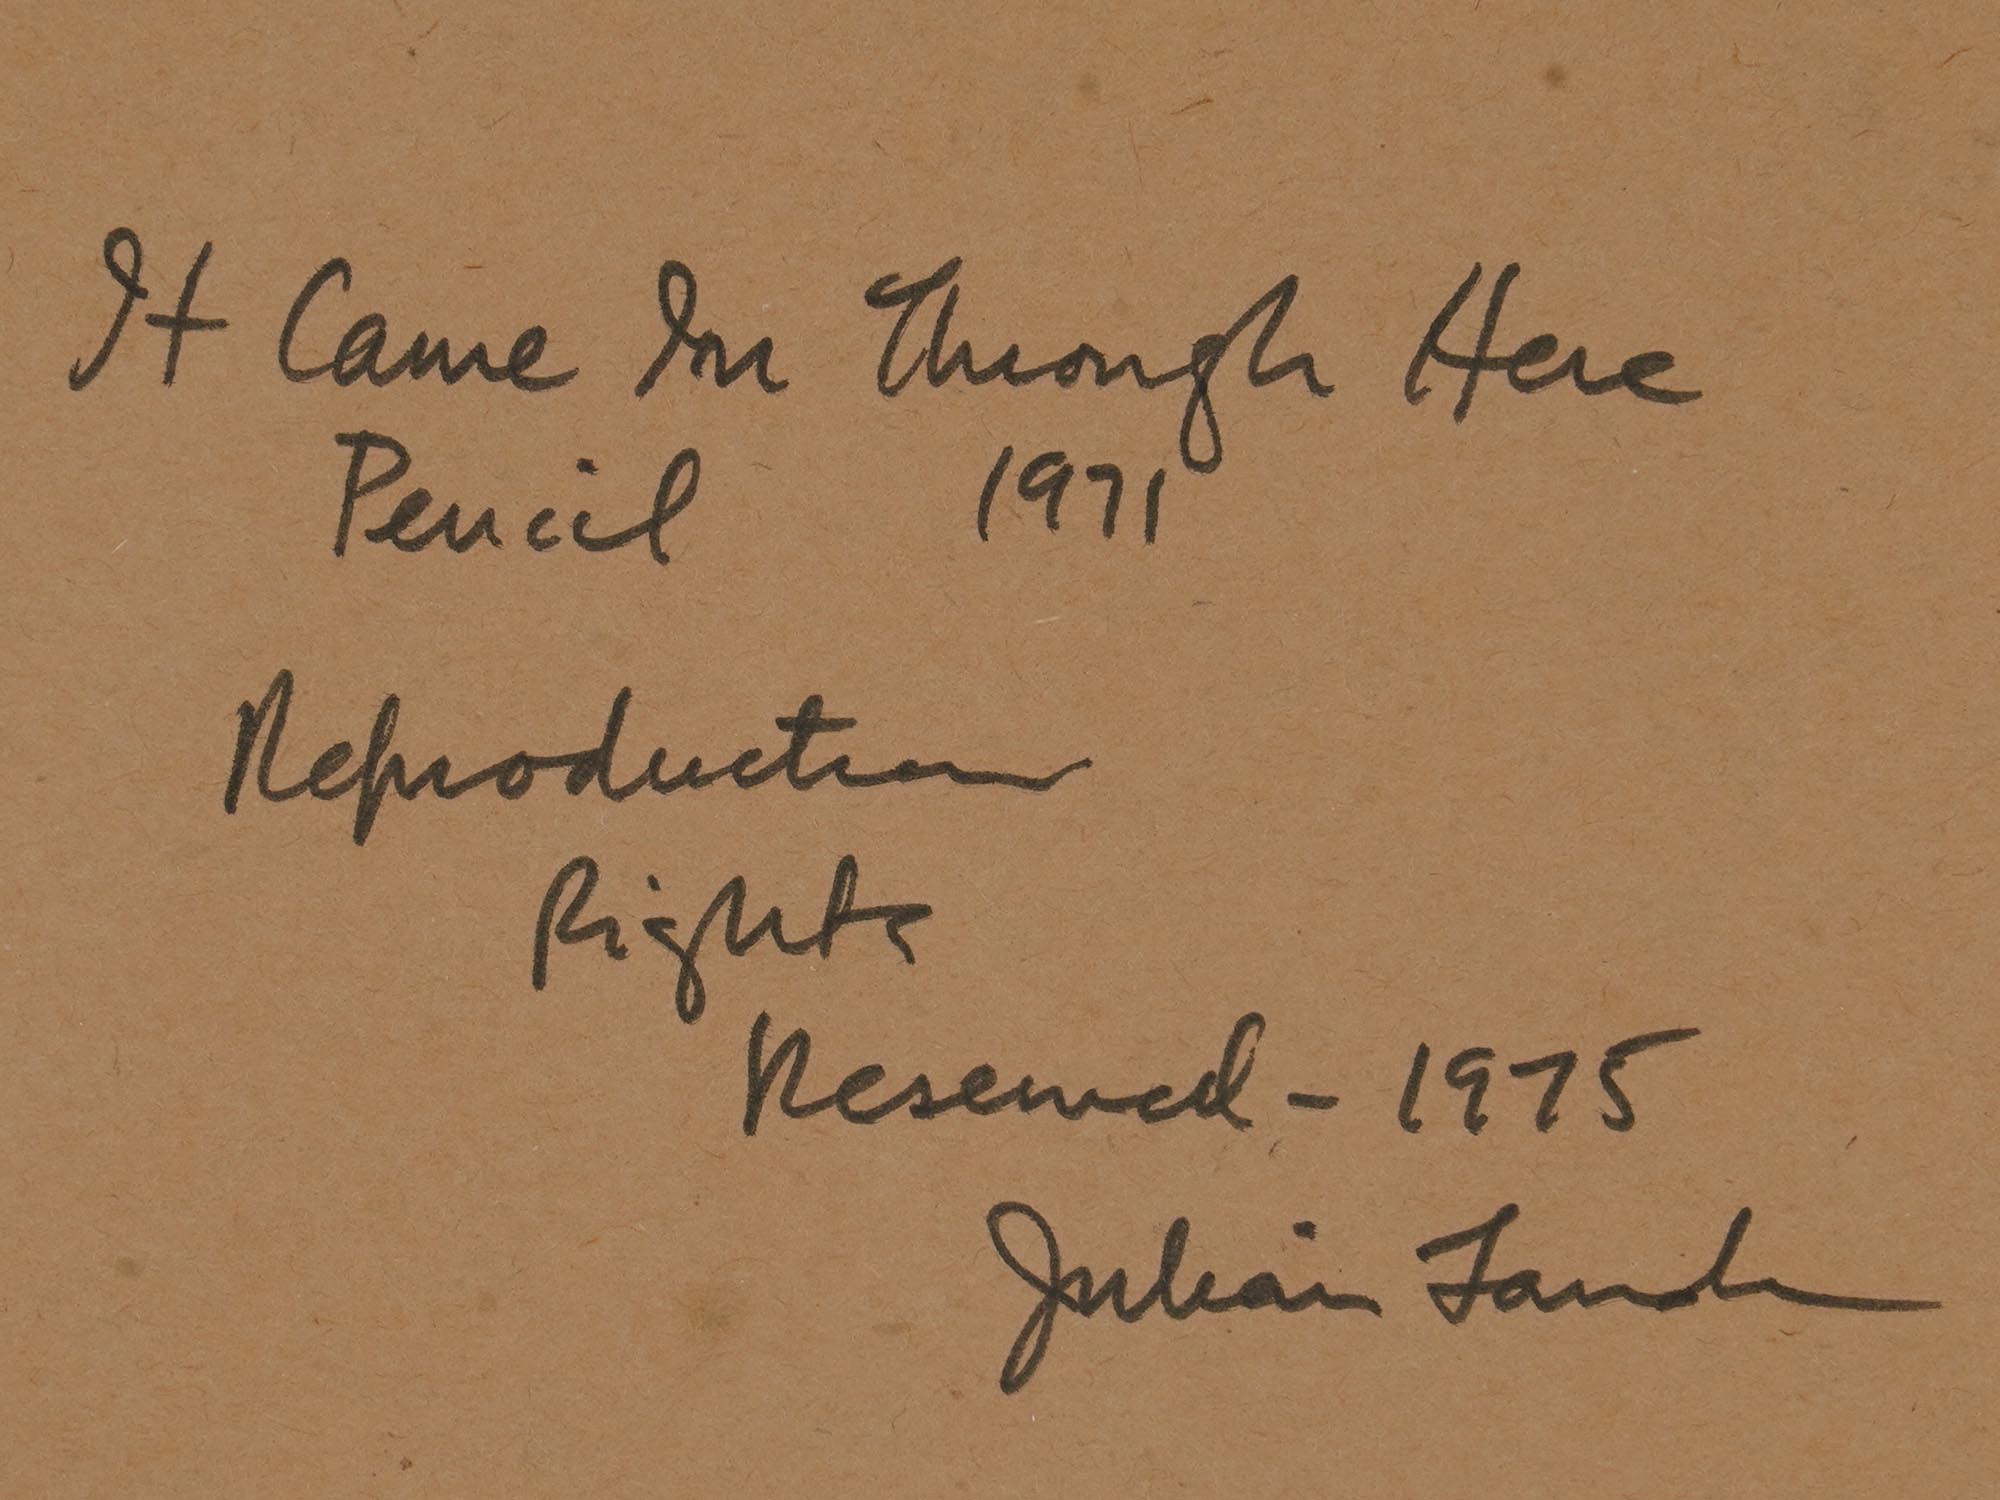 It Came In Through Here
Pencil 1971
Reproduction
Rights
Reserved - 1975
Julian